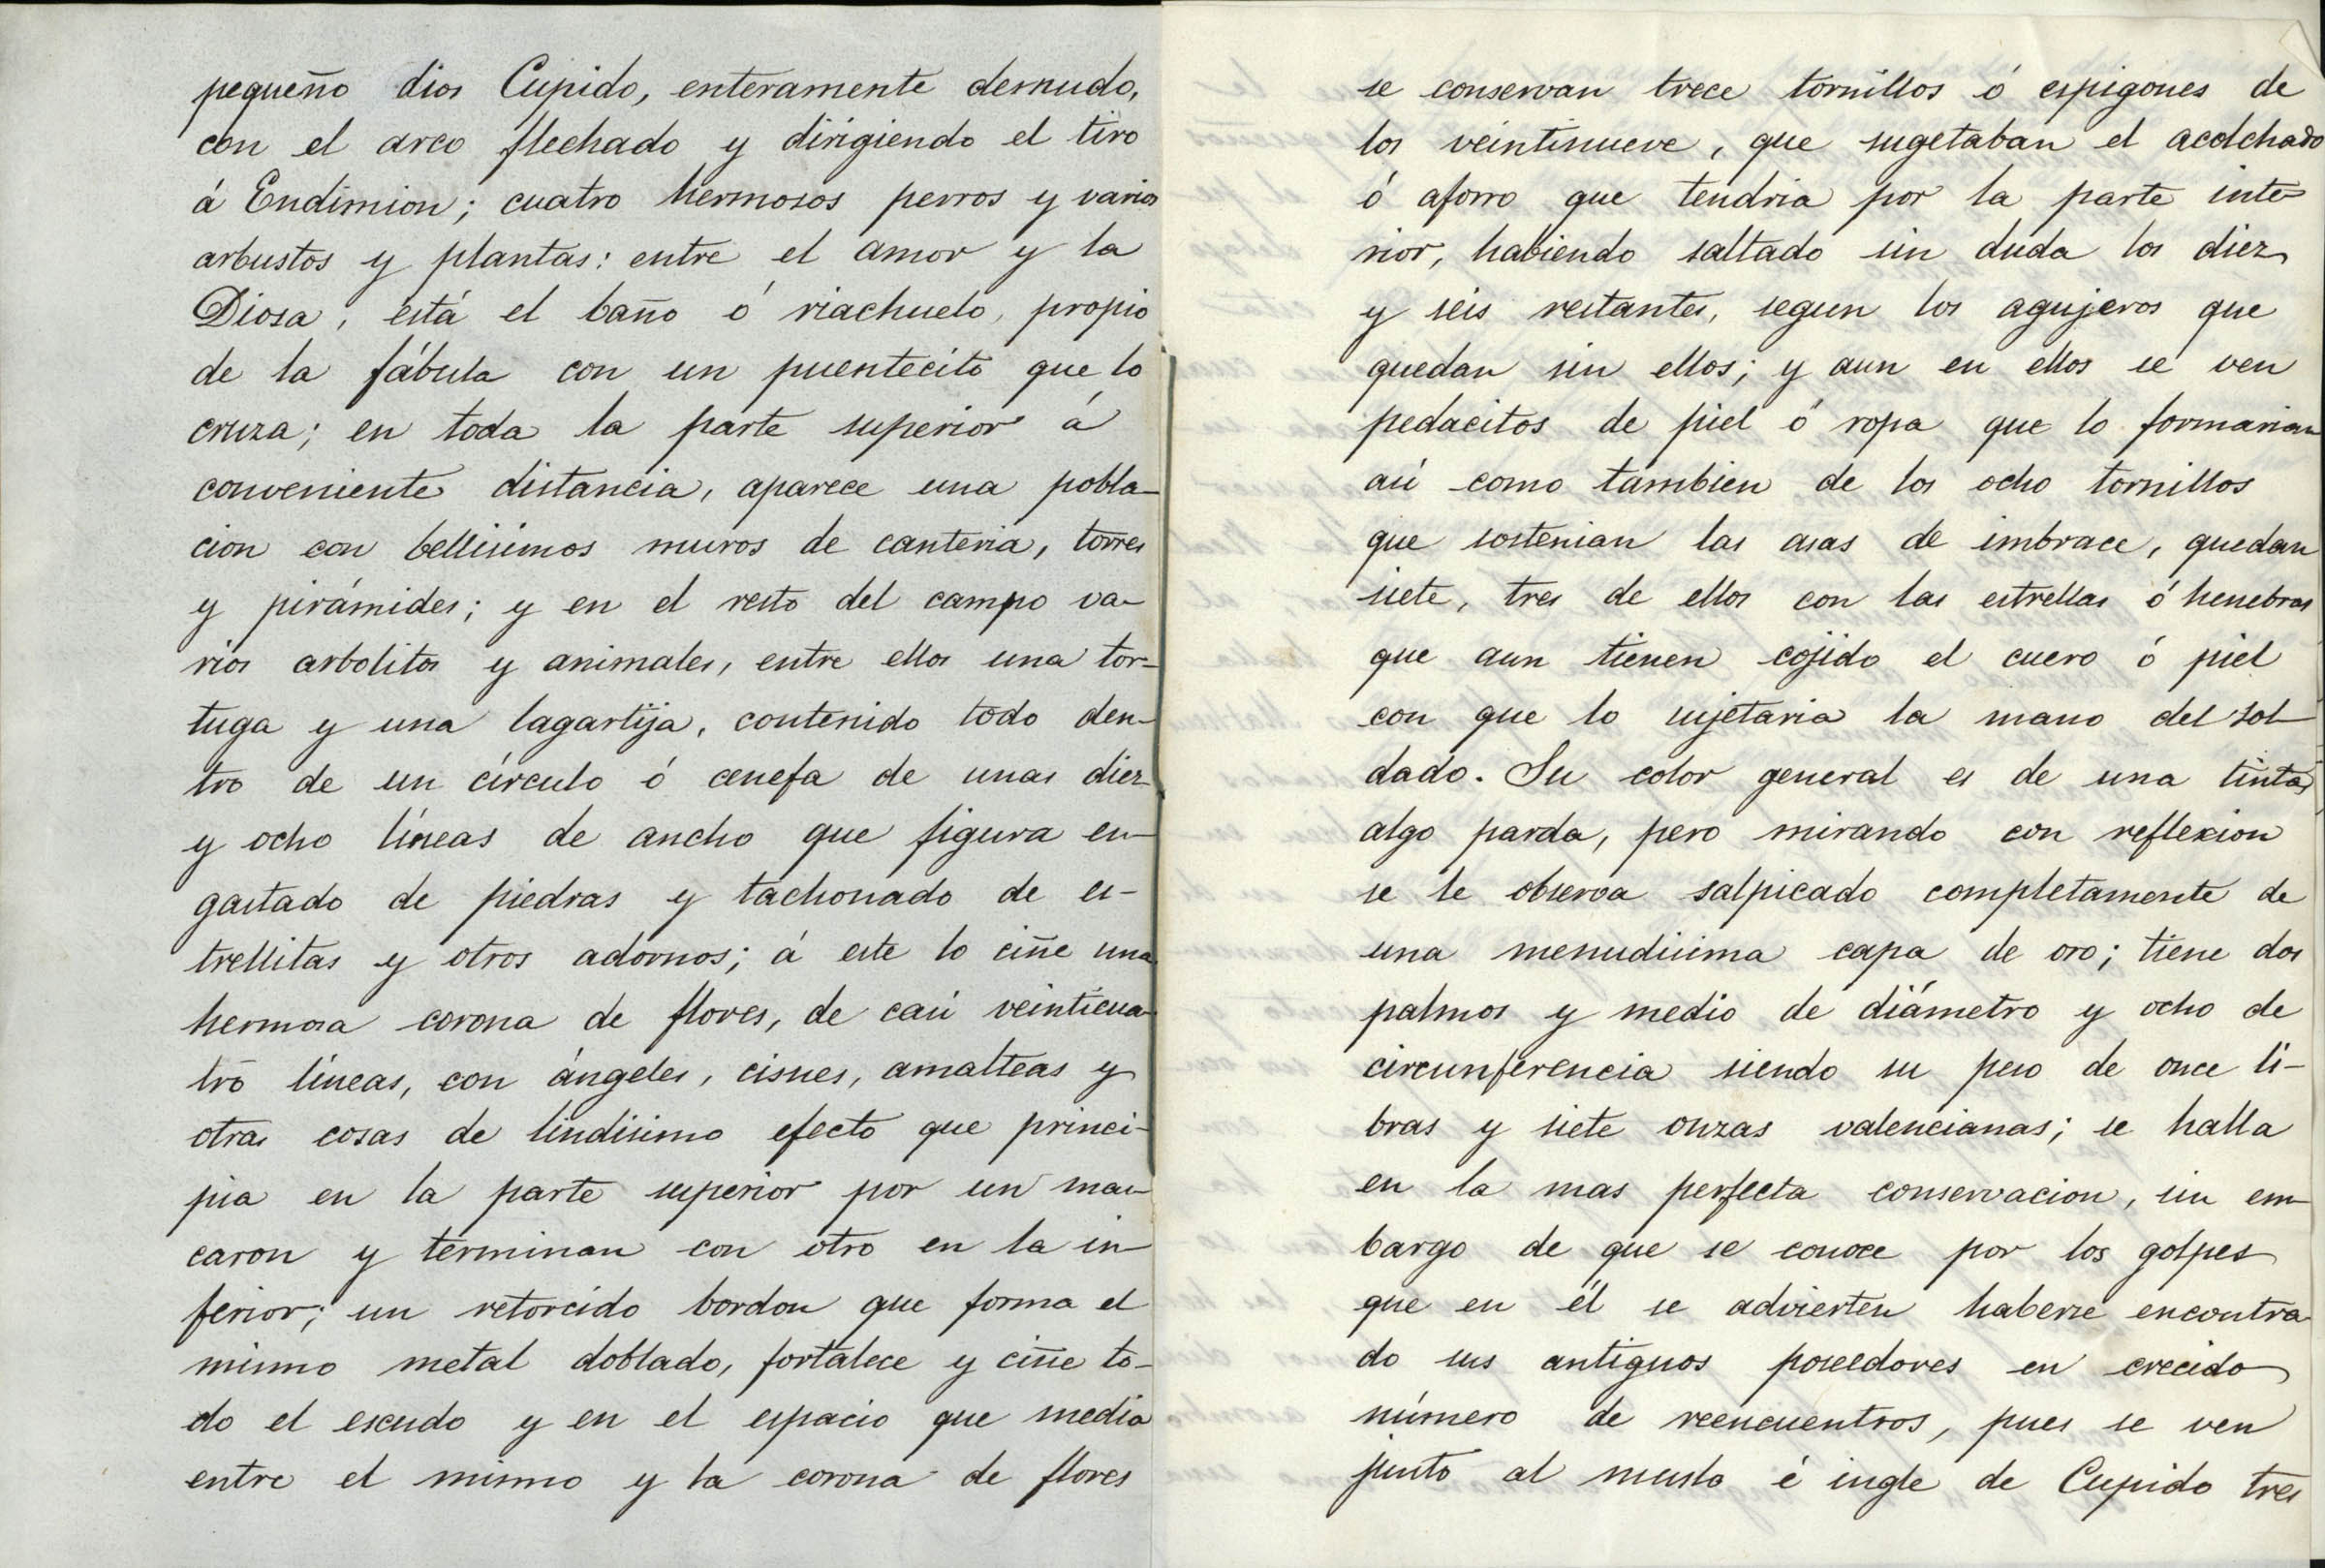 pequeño dios Cupido, enteramente desnudo,
con el arco flechado y dirigiendo el tiro
á Endimion; cuatro hermosos perros y varios
arbustos y plantas: entre el amor y la
Diosa, está el baño ó riachuelo, propio
de la fábula con un puentecito que lo
cruza; en toda la parte superior á
conveniente distancia, aparece una pobla-
cion con bellisimos muros de canteria, torres
y pirámides; y en el resto del campo va-
rios arbolitos y animales, entre ellos una tor-
tuga y una lagartija, contenido todo den-
tro de un círculo ó cenefa de unas diez
y ocho líneas de ancho que figura en-
gastado de piedras y tachonado de es-
trellitas y otros adornos; á este lo ciñe una
hermosa corona de flores, de casi veinticua-
tro líneas, con ángeles, cisnes, amalteas y
otras cosas de lindisimo efecto que princi-
pia en la parte superior por un mas-
caron y terminan con otro en la in-
ferior; un retorcido bordon que forma el
mismo metal doblado, fortalece y ciñe to-
do el escudo y en el espacio que media
entre el mismo y la corona de flores
se conservan trece tornillos ó espigones de
los veintinueve, que sugetaban el acolchado
ó aforro que tendria por la parte inte-
rior, habiendo saltado sin duda los diez
y seis restantes, segun los agujeros que
quedan sin ellos; y aun en ellos se ven
pedacitos de piel ó ropa que lo formarian
asi como tambien de los ocho tornillos
que sostenian las asas de imbrace, quedan
siete, tres de ellos con las estrellas ó henebras
que aun tienen cojido el cuero ó piel
con que lo sujetaria la mano del sol-
dado. Su color general es de una tinta
algo parda, pero mirando con reflexion
se le observa salpicado completamente de
una menudisima capa de oro; tiene dos
palmos y medio de diámetro y ocho de
circunferencia siendo su peso de once li-
bras y siete onzas valencianas; se halla
en la mas perfecta conservacion, sin em-
bargo de que se conoce por los golpes
que en él se advierten haberse encontra-
do sus antiguos poseedores en crecido
número de reencuentros, pues se ven
junto al muslo é ingle de Cupido tres